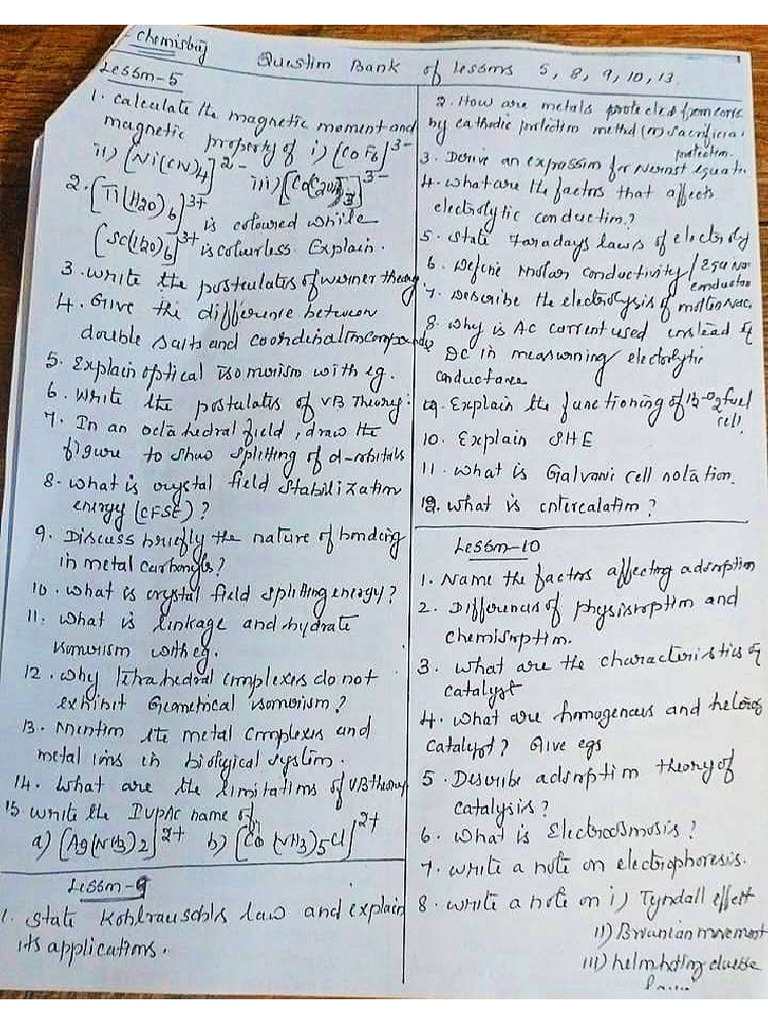 Chemistry
Question Bank of Lessons 5, 8, 9, 10, 13
Lesson-5
1. Calculate the magnetic moment and
magnetic property of i) [CoF6]3-
ii) [Ni(CN)4]2- iii) [Co(C2O4)3]3-
2. [Ti(H2O)6]3+ is coloured while
[Sc(H2O)6]3+ is colourless. Explain.
3. Write the postulates of werner theory
4. Give the difference between
double salts and coordination compounds
5. Explain optical isomerism with eg.
6. Write the postulates of VB Theory:
7. In an octahedral field, draw the
figure to show splitting of d-orbitals
8. what is crystal field stabilization
energy (CFSE)?
9. Discuss briefly the nature of bonding
in metal carbonyls?
10. what is crystal field splitting energy?
11. what is linkage and hydrate
isomerism with eg.
12. why tetrahedral complexes do not
exhibit Geometrical isomerism?
13. Mention the metal complexes and
metal ions in biological system.
14. what are the limitations of VB theory
15 write the IUPAC name of
a) [Ag(NH3)2]2+ b) [Co(NH3)5Cl]2+
Lesson-9
1. State Kohlrausch's law and explain
its applications.
2. How are metals protected from corro
by cathodic protection method (or) Sacrificial
protection.
3. Derive an expression for Nernst equati.
4. what are the factors that affects
electrolytic conduction?
5. State Faradays laws of electroly
6. Define Molar conductivity/
conductan
7. Describe the electrolysis of molten NaCl
8. why is AC current used instead of
DC in measurning electrolytic
conductance
9. Explain the functioning of H2-O2 fuel
cell.
10. Explain SHE
11. what is Galvanic cell notation.
12. what is intercalation?
Lesson-10
1. Name the factors affecting adsorption
2. Differences of physisorption and
chemisorption.
3. what are the characteristics of
catalyst
4. what are homogeneous and heterog
catalyst? Give egs
5. Describe adsorption theory of
catalysis?
6. What is Electroosmosis?
7. write a note on electrophoresis.
8. write a note on i) Tyndall effect
ii) Brownian movement
iii) helmholtz double